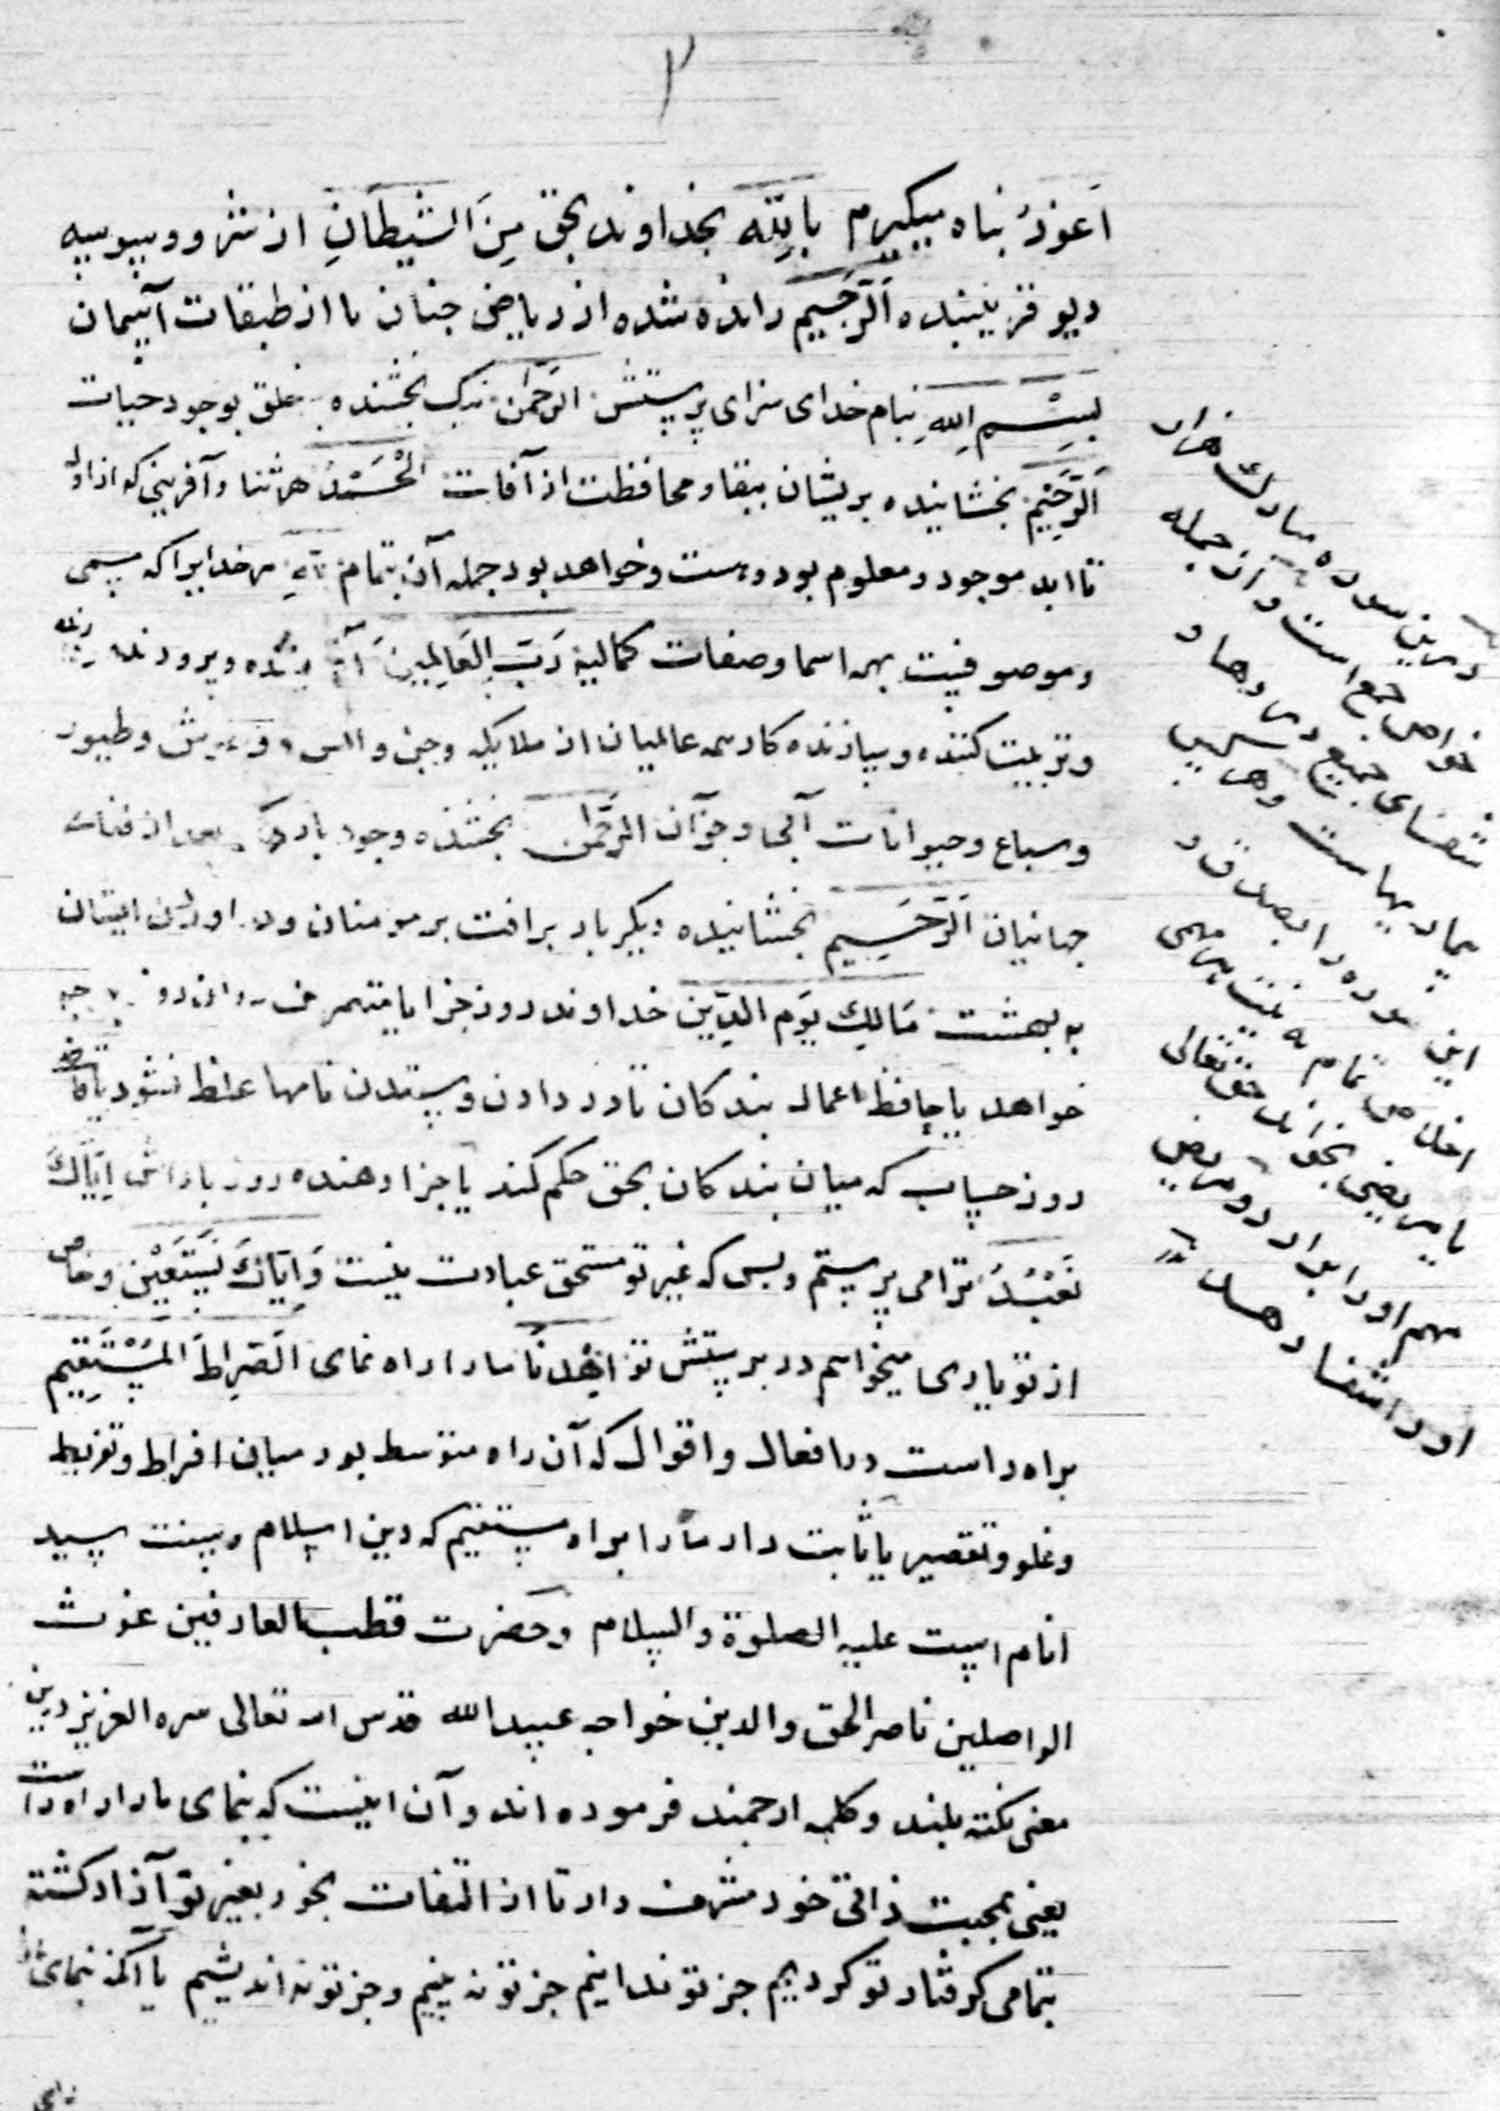 ۲
اَعُوذُ پناه میگیرم بِاللّٰهِ بخداوند بحق مِنَ الشَّیطَانِ از شر و وسوسه
دیو فریبنده اَلرَّجِیمِ رانده شده از ریاض جنان یا از طبقات آسمان
بِسْمِ اللهِ بنام خدای سزای پرستش الرَّحمٰنِ نیک بخشنده بر خلق بوجود حیات
اَلرَّحِیمِ بخشاینده بریشان ببقا و محافظت از آفات اَلْحَمْدُ هر ثنا و آفرینی که از ازل
تا ابد موجود و معلوم بود و هست و خواهد بود جمله آن بتمام لِلّٰهِ مر خدایرا که مسمی
و موصوفیت بهمه اسما و صفات کمالیه رَبِّ الْعَالَمِینَ آفریننده و پرورنده
و تربیت کننده و سازنده کار همه عالمیان از ملایکه و جن و انس و وحوش و طیور
و سباع و حیوانات آبی و جز آن الرَّحْمٰنِ بخشنده وجود بار دیگر بعد از فنای
جهانیان اَلرَّحِیمِ بخشاینده دیگر بار برافت بر مومنان و در اوردن ایشان
به بهشت مَالِكِ یَوْمِ الدِّینِ خداوند روز جزا یا متصرف در ان روز
خواهد یا حافظ اعمال بندکان تا در دادن و ستدن نامها غلط نشود یا قاضی
روز حساب که میان بندکان بحق حکم کند یا جزا دهنده روز پاداش اِیَّاكَ
نَعْبُدُ ترا می پرستیم و بس که غیر تو مستحق عبادت نیست وَاِیَّاكَ نَسْتَعِیْنُ و خاص
از تو یاری میخواهیم در پرستش تو اِهْدِنَا ما را راه نمای الصِّرَاطَ الْمُسْتَقِیمَ
براه راست در افعال و اقوال که آن راه متوسط بود میان افراط و تفریط
و غلو و تقصیر یا ثابت دار ما را براه مستقیم که دین اسلام و سنت سید
انام است علیه الصلوة والسلام و حضرت قطب العارفین غوث
الواصلین ناصر الحق والدین خواجه عبید الله قدس الله تعالی سره العزیز درین
معنی نکته بلند و کلمه ارجمند فرموده اند و آن اینست که بنمای ما را راه راست
یعنی بمحبت ذاتی خود مشرف دار تا از التفات بخود و بغیر تو آزاد کشته
بتمامی کرفتار تو کردیم جز تو ندانیم جز تو نه بینیم و جز تو نه اندیشیم یا آنکه بنمای
درین سوره مبارک هزار
خواص جمع است و از جمله
شفای جمیع دردها و
بیماریهاست و هر کس
این سوره را بصدق و
اخلاص تمام به نیت هر مهمی
یا مریضی بخواند حق تعالی
مهم او را بر آرد و مریض
او را شفا دهد